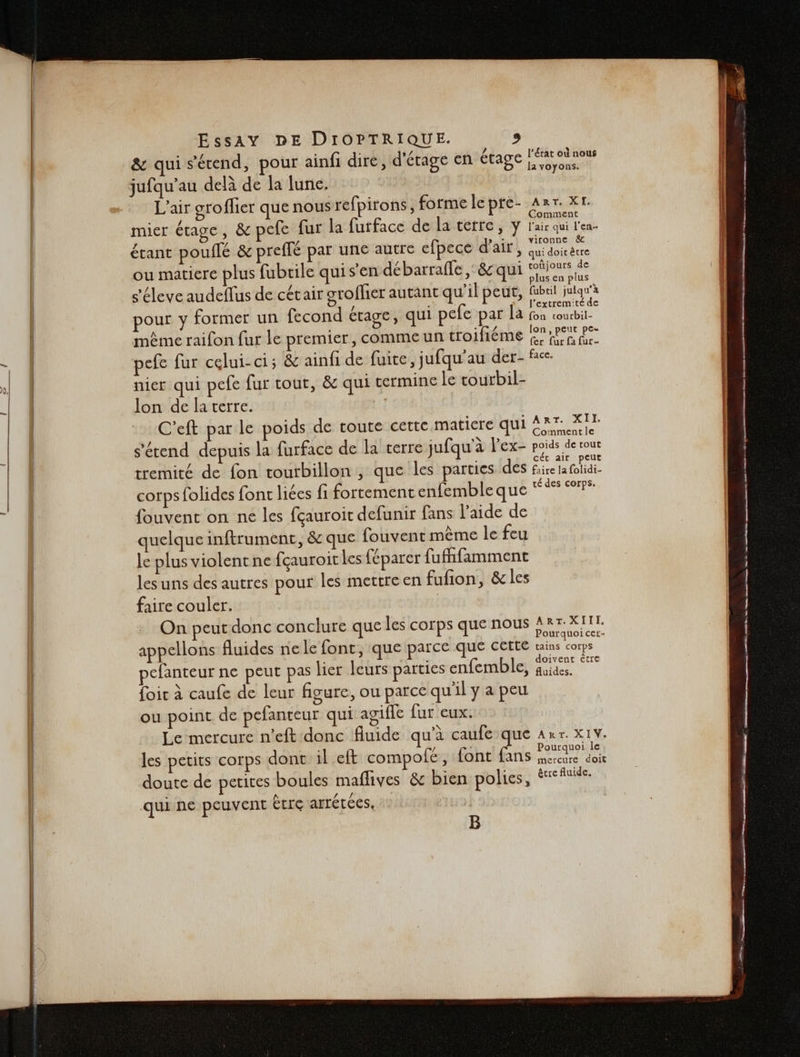 Essay de Dioptrique. 9
& qui s'étend, pour ainſi dire, d'étage en étage
juſqu'au delà de la lune.
L'air groſſier que nous reſpirons, forme le pre-
mier étage, & peſe ſur la ſurface de la terre, y
étant pouſſé & preſſé par une autre eſpece d'air,
ou matiere plus ſubtile qui s'en débarraſſe, & qui
s'éleve audeſſus de cét air groſſier autant qu'il peut,
pour y former un ſecond étage, qui peſe par la
même raiſon ſur le premier, comme un troiſiéme
peſe ſur celui-ci; & ainſi de ſuite, juſqu'au der-
nier qui peſe ſur tout, & qui termine le tourbil-
lon de la terre.
C'eſt par le poids de toute cette matiere qui
s'étend depuis la ſurface de la terre juſqu'à l'ex-
tremité de ſon tourbillon, que les parties des
corps ſolides ſont liées ſi fortement enſemble que
ſouvent on ne les ſçauroit deſunir ſans l'aide de
quelque inſtrument, & que ſouvent même le feu
le plus violent ne ſçauroit les ſéparer ſuffiſamment
les uns des autres pour les mettre en fuſion, & les
faire couler.
On peut donc conclure que les corps que nous
appellons fluides ne le ſont, que parce que cette
peſanteur ne peut pas lier leurs parties enſemble,
ſoit à cauſe de leur figure, ou parce qu'il y a peu
ou point de peſanteur qui agiſſe ſur eux.
Le mercure n'eſt donc fluide qu'à cauſe que
les petits corps dont il eſt compoſé, ſont ſans
doute de petites boules maſſives & bien polies,
qui ne peuvent être arrétées,
B
l'état où nous
la voyons.
Art. XI.
Comment
l'air qui l'en-
vironne &
qui doit être
toûjours de
plus en plus
ſubtil juſqu'à
l'extremité de
ſon tourbil-
lon, peut pe-
ſer ſur ſa ſur-
face.
Art. XII.
Comment le
poids de tout
cét air peut
faire la ſolidi-
té des corps.
Art. XIII.
Pourquoi cer-
tains corps
doivent être
fluides.
Art. XIV.
Pourquoi le
mercure doit
être fluide.